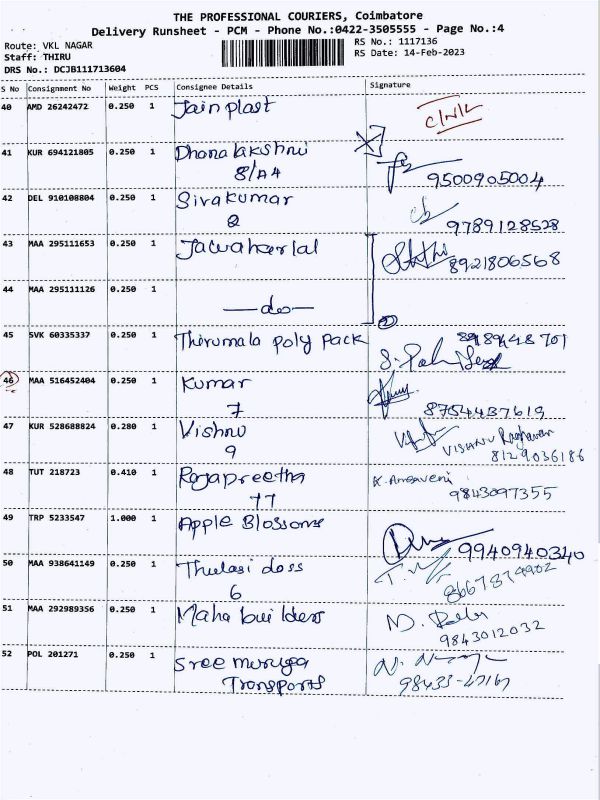 THE PROFESSIONAL COURIERS, Coimbatore
Delivery Runsheet - PCM - Phone No.:0422-3505555 - Page No.:4
Route: VKL NAGAR
RS No.: 1117136
Staff: THIRU
RS Date: 14-Feb-2023
DRS No.: DCJB111713604
S No Consignment No Weight PCS Consignee Details Signature
40 AMD 26242472 0.250 1 Jain plast
C/N/L
41 KUR 694121805 0.250 1 Dhanalakshmi
8/A4
9500905004
42 DEL 910108804 0.250 1 Sivakumar
8
9789128528
43 MAA 295111653 0.250 1 Jawaharlal
8921806568
44 MAA 295111126 0.250 1
—do—
2
45 SVK 60335337 0.250 1 Thirumala poly pack
46 MAA 516452404 0.250 1 Kumar
7
8754437619
47 KUR 528688824 0.280 1 Vishnu
9
VISHNU Raghavan
8129036186
48 TUT 218723 0.410 1 Rajapreetha
77
K. Angaveni
9843097355
49 TRP 5233547 1.000 1 Apple Blossoms
9940940340
50 MAA 938641149 0.250 1 Thulasi doss
6
8667879902
51 MAA 292989356 0.250 1 Maha builders
9843012032
52 POL 201271 0.250 1 Sree muruga
Transports